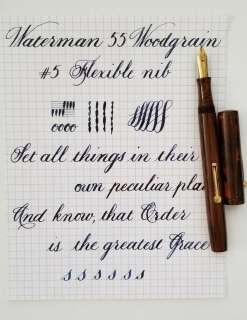 Waterman 55 Woodgrain
#5 Flexible nib
Set all things in their
own peculiar pla
And know, that Order
is the greatest Grace
s s s s s s